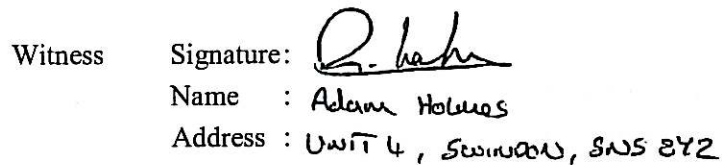 Witness Signature:
Name : Adam Holmes
Address : UNIT 4, SWINDON, SN5 8YZ